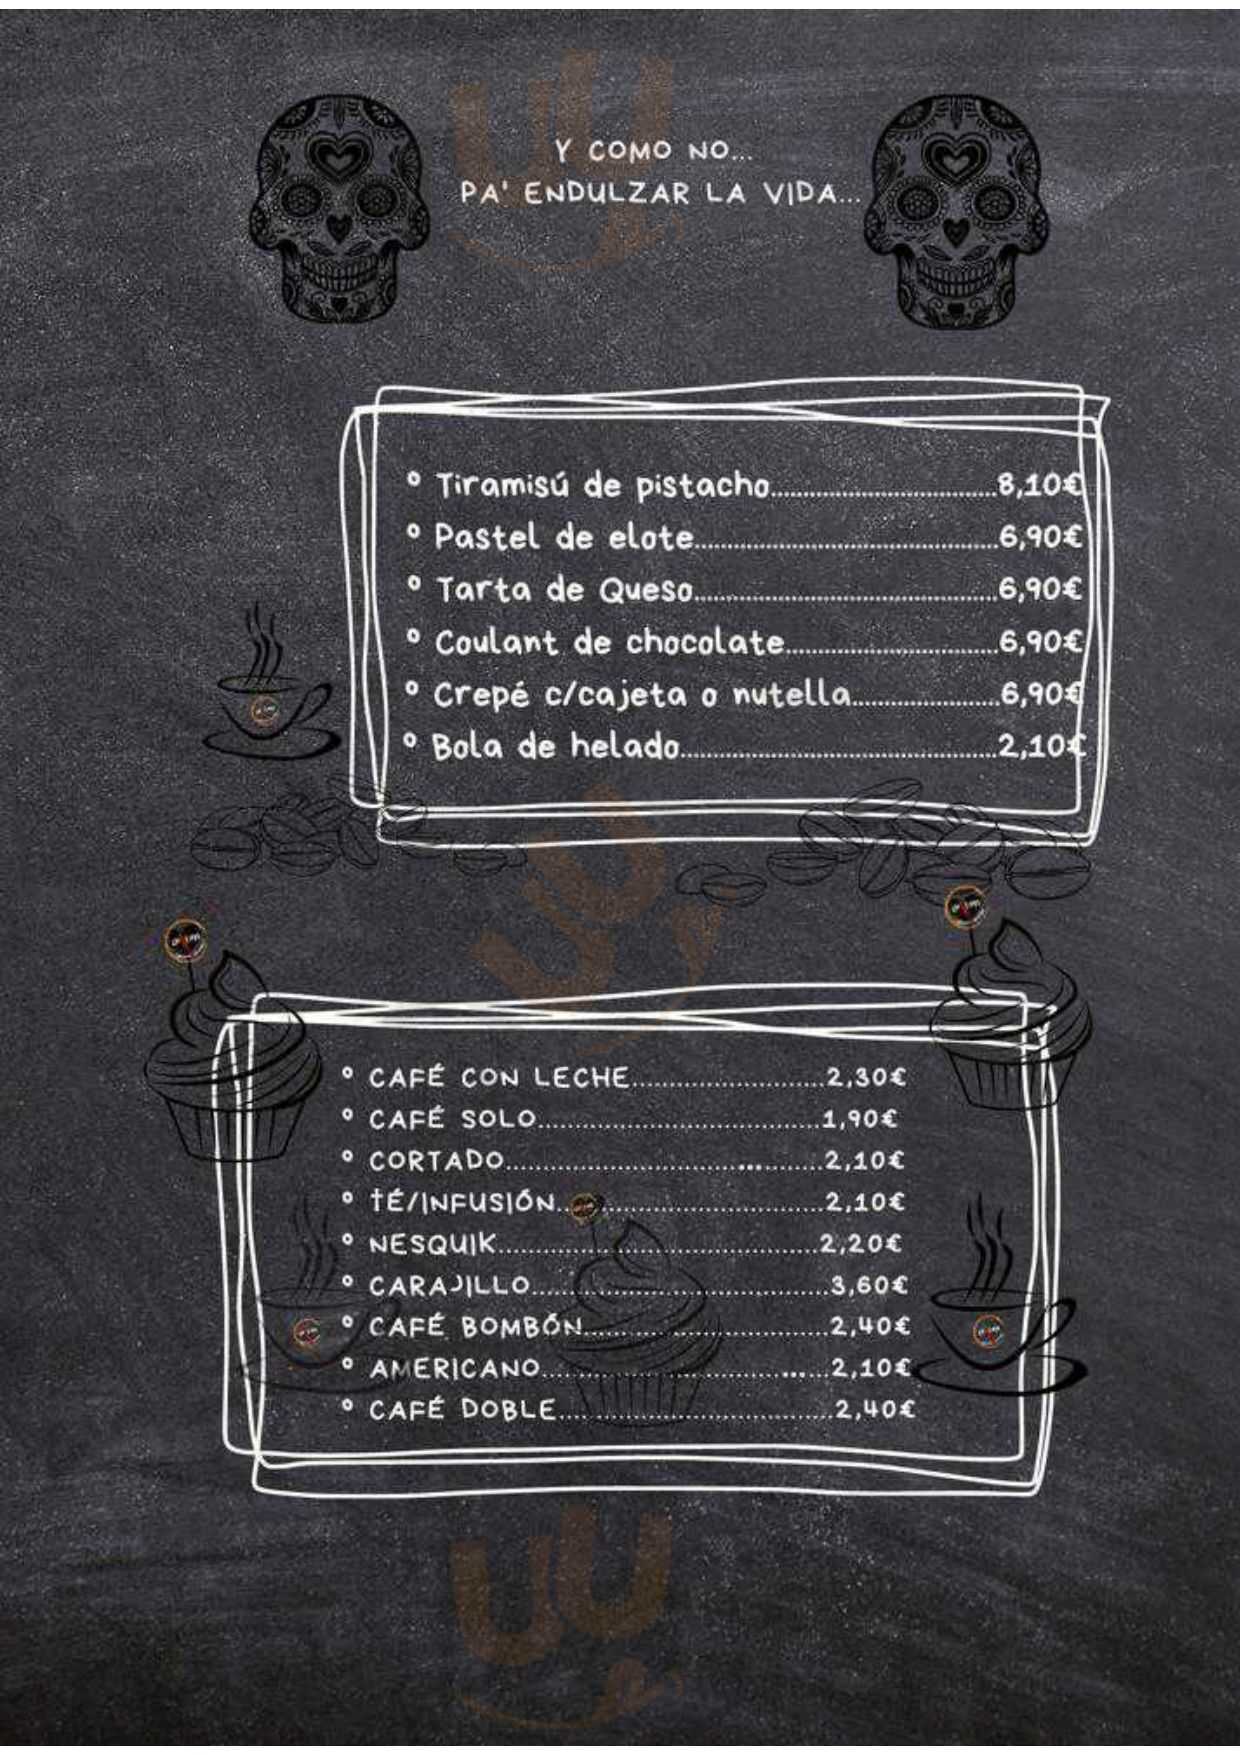 Y COMO NO...
PA' ENDULZAR LA VIDA...
° Tiramisú de pistacho..............................8,10€
° Pastel de elote........................................6,90€
° Tarta de Queso........................................6,90€
° Coulant de chocolate............................6,90€
° Crepé c/cajeta o nutella...................6,90€
° Bola de helado..........................................2,10€
° CAFÉ CON LECHE.........................2,30€
° CAFÉ SOLO.....................................1,90€
° CORTADO..........................................2,10€
° TÉ/INFUSIÓN...................................2,10€
° NESQUIK..........................................2,20€
° CARAJILLO.......................................3,60€
° CAFÉ BOMBÓN................................2,40€
° AMERICANO.....................................2,10€
° CAFÉ DOBLE....................................2,40€